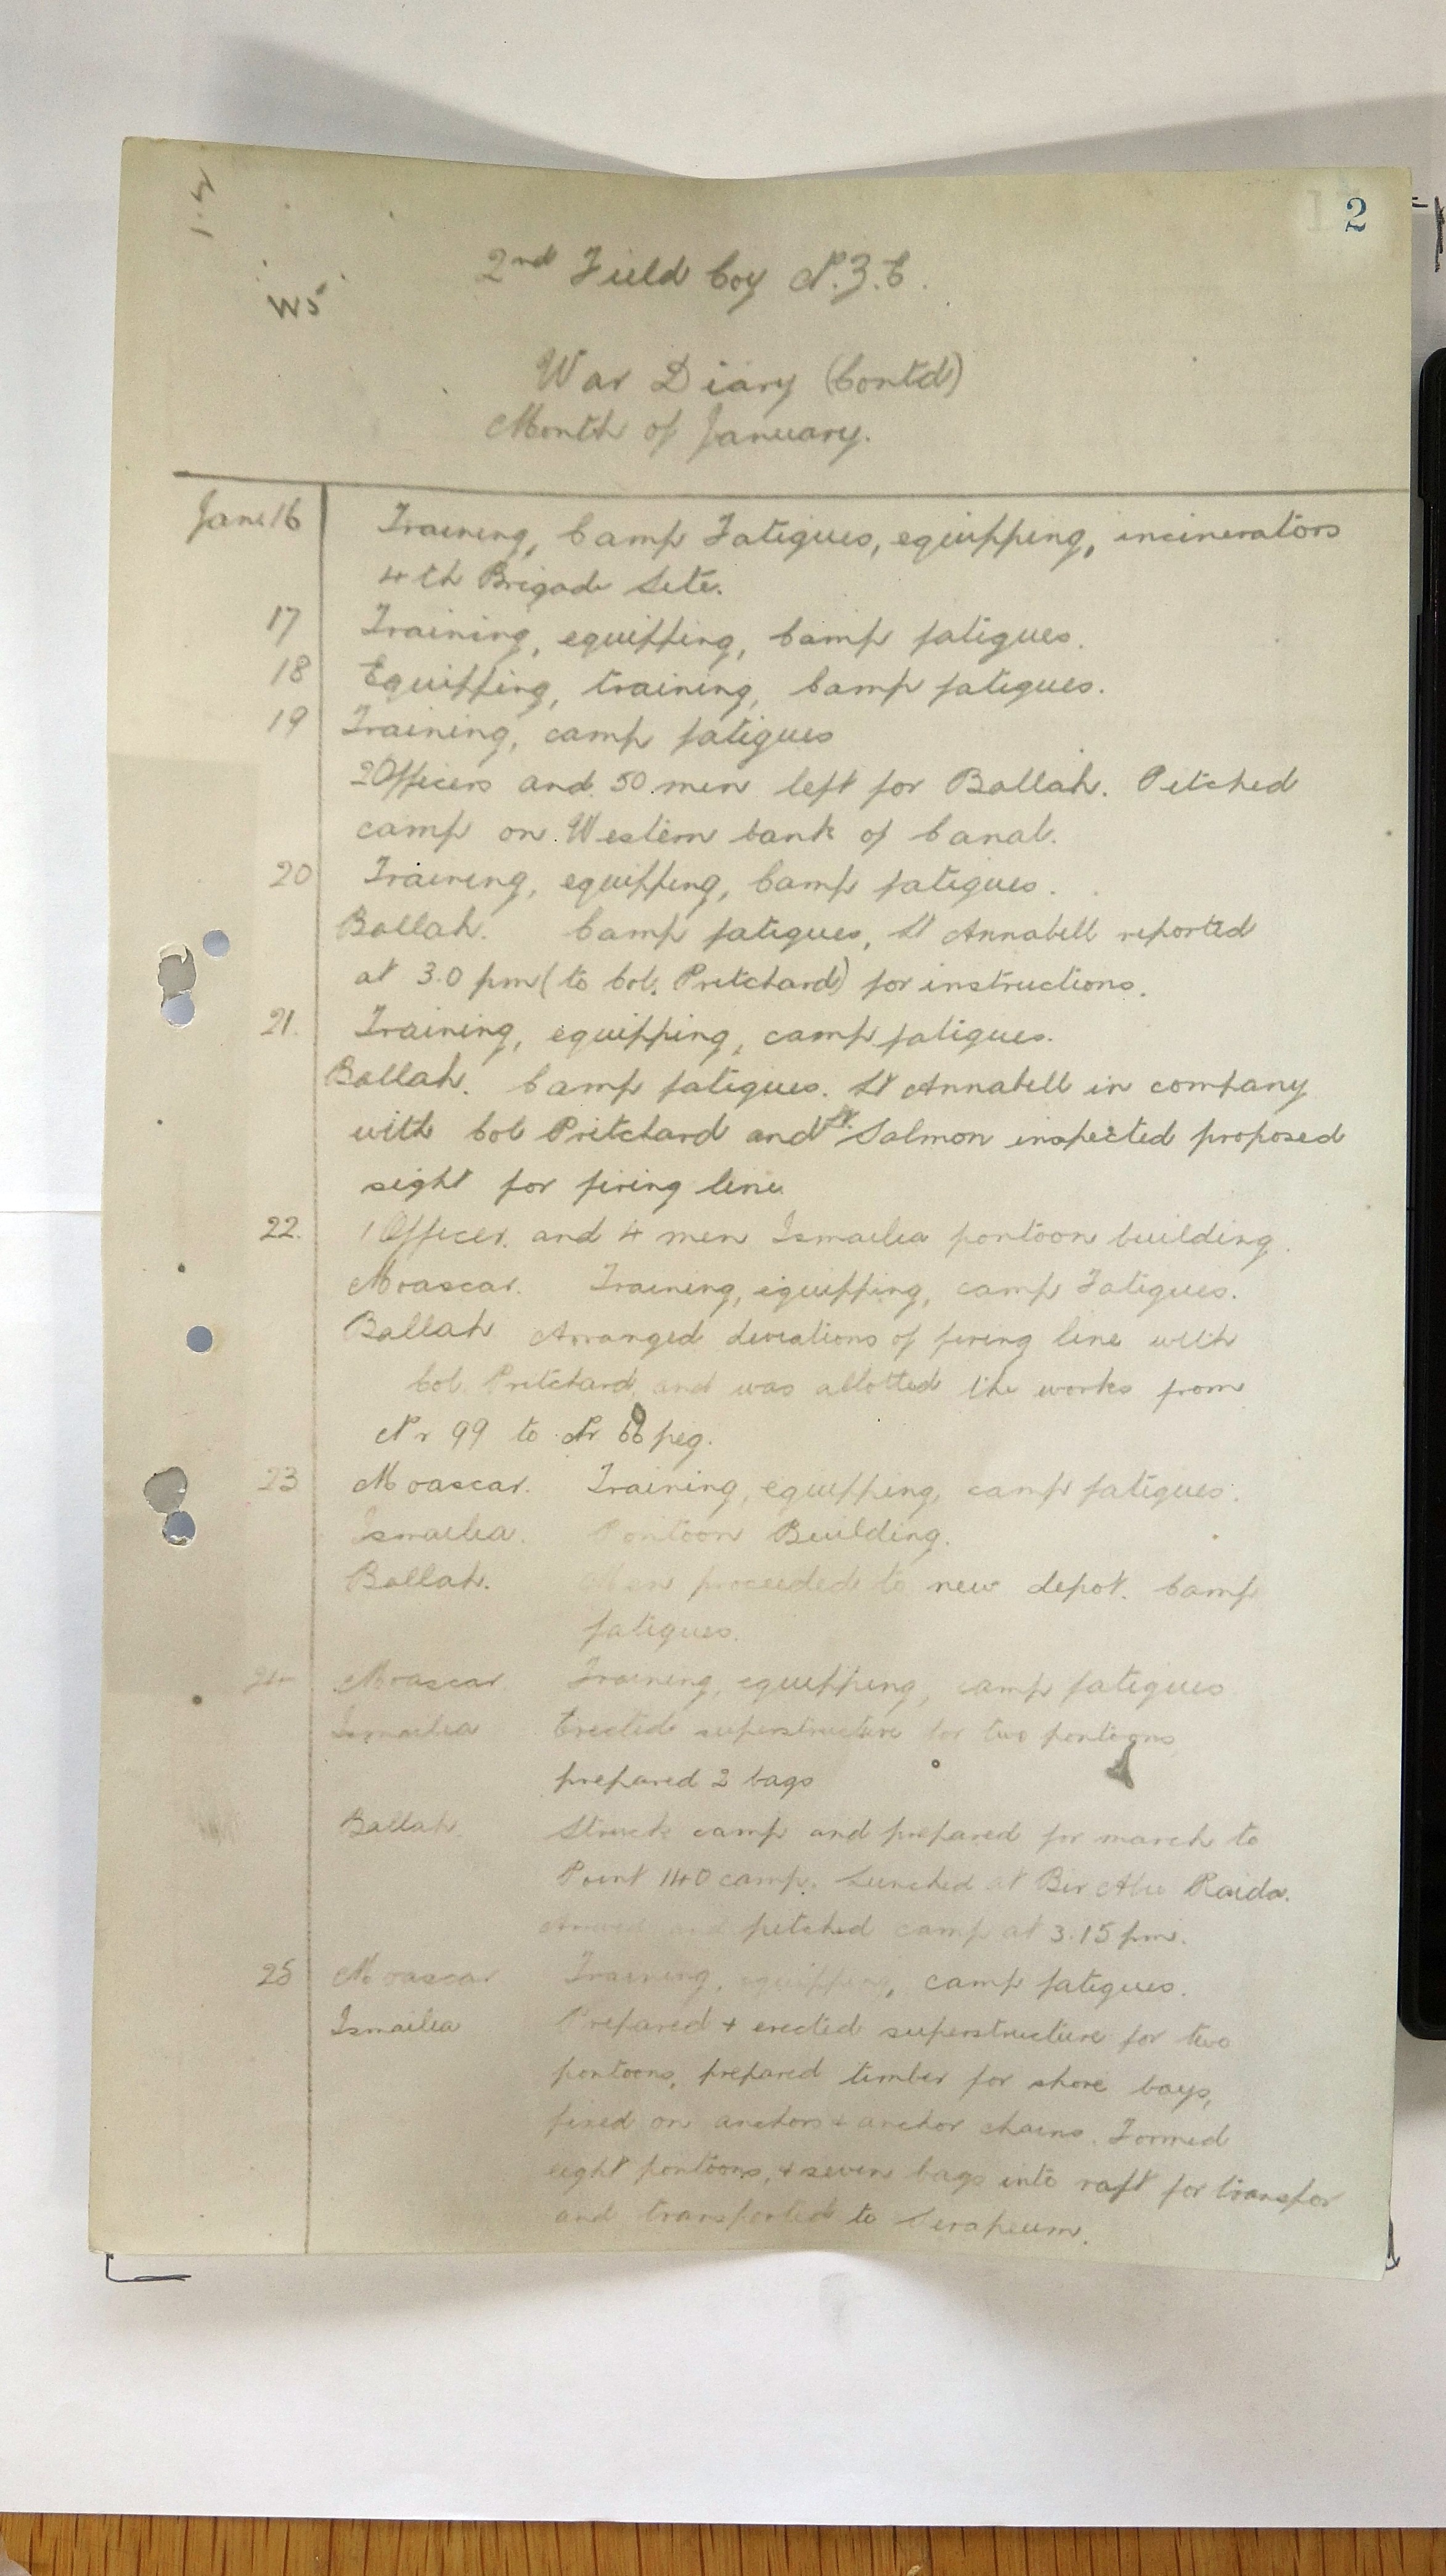 2
W5
2nd Field Coy N.Z.E.
War Diary (Contd)
Month of January.
Jan. 16 Training, Camp Fatigues, equipping, incinerators
4th Brigade Site.
17 Training, equipping, Camp fatigues.
18 Equipping, training, Camp fatigues.
19 Training, camp fatigues
2 Officers and 50 men left for Ballah. Pitched
camp on Western bank of Canal.
20 Training, equipping, Camp fatigues.
Ballah. Camp fatigues, Lt Annabell reported
at 3.0 pm (to Col. Pritchard) for instructions.
21. Training, equipping, camp fatigues.
Ballah. Camp fatigues. Lt Annabell in company
with Col Pritchard and Lt. Salmon inspected proposed
sight for firing line
22. 1 Officer and 4 men Ismailia pontoon building.
Moascar. Training, equipping, camp Fatigues.
Ballah Arranged deviations of firing line with
Col. Pritchard and was allotted the works from
Nr 99 to Nr peg.
23 Moascar. Training, equipping, camp fatigues.
Ismailia. Pontoon Building.
Ballah. Men proceeded to new depot. Camp
fatigues.
24 Moascar Training, equipping, camp fatigues
Ismailia Erected superstructure for two pontoons,
prepared 2 bags
Ballah Struck camp and prepared for march to
Point 140 camp. Lunched at Bir Abu Raida.
Arrived and pitched camp at 3.15 pm.
25 Moascar Training, equipping, camp fatigues.
Ismailia Prepared + erected superstructure for two
pontoons, prepared timber for shore bays,
fixed on anchors + anchor chains. Formed
eight pontoons, + seven bags into raft for transfer
and transported to Serapeum.